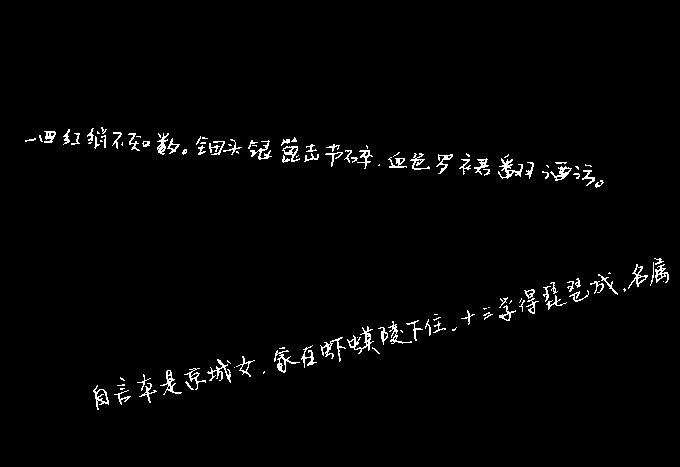 一曲红绡不知数。钿头银篦击节碎,血色罗裙翻酒污。
自言本是京城女,家在虾蟆陵下住。十三学得琵琶成,名属